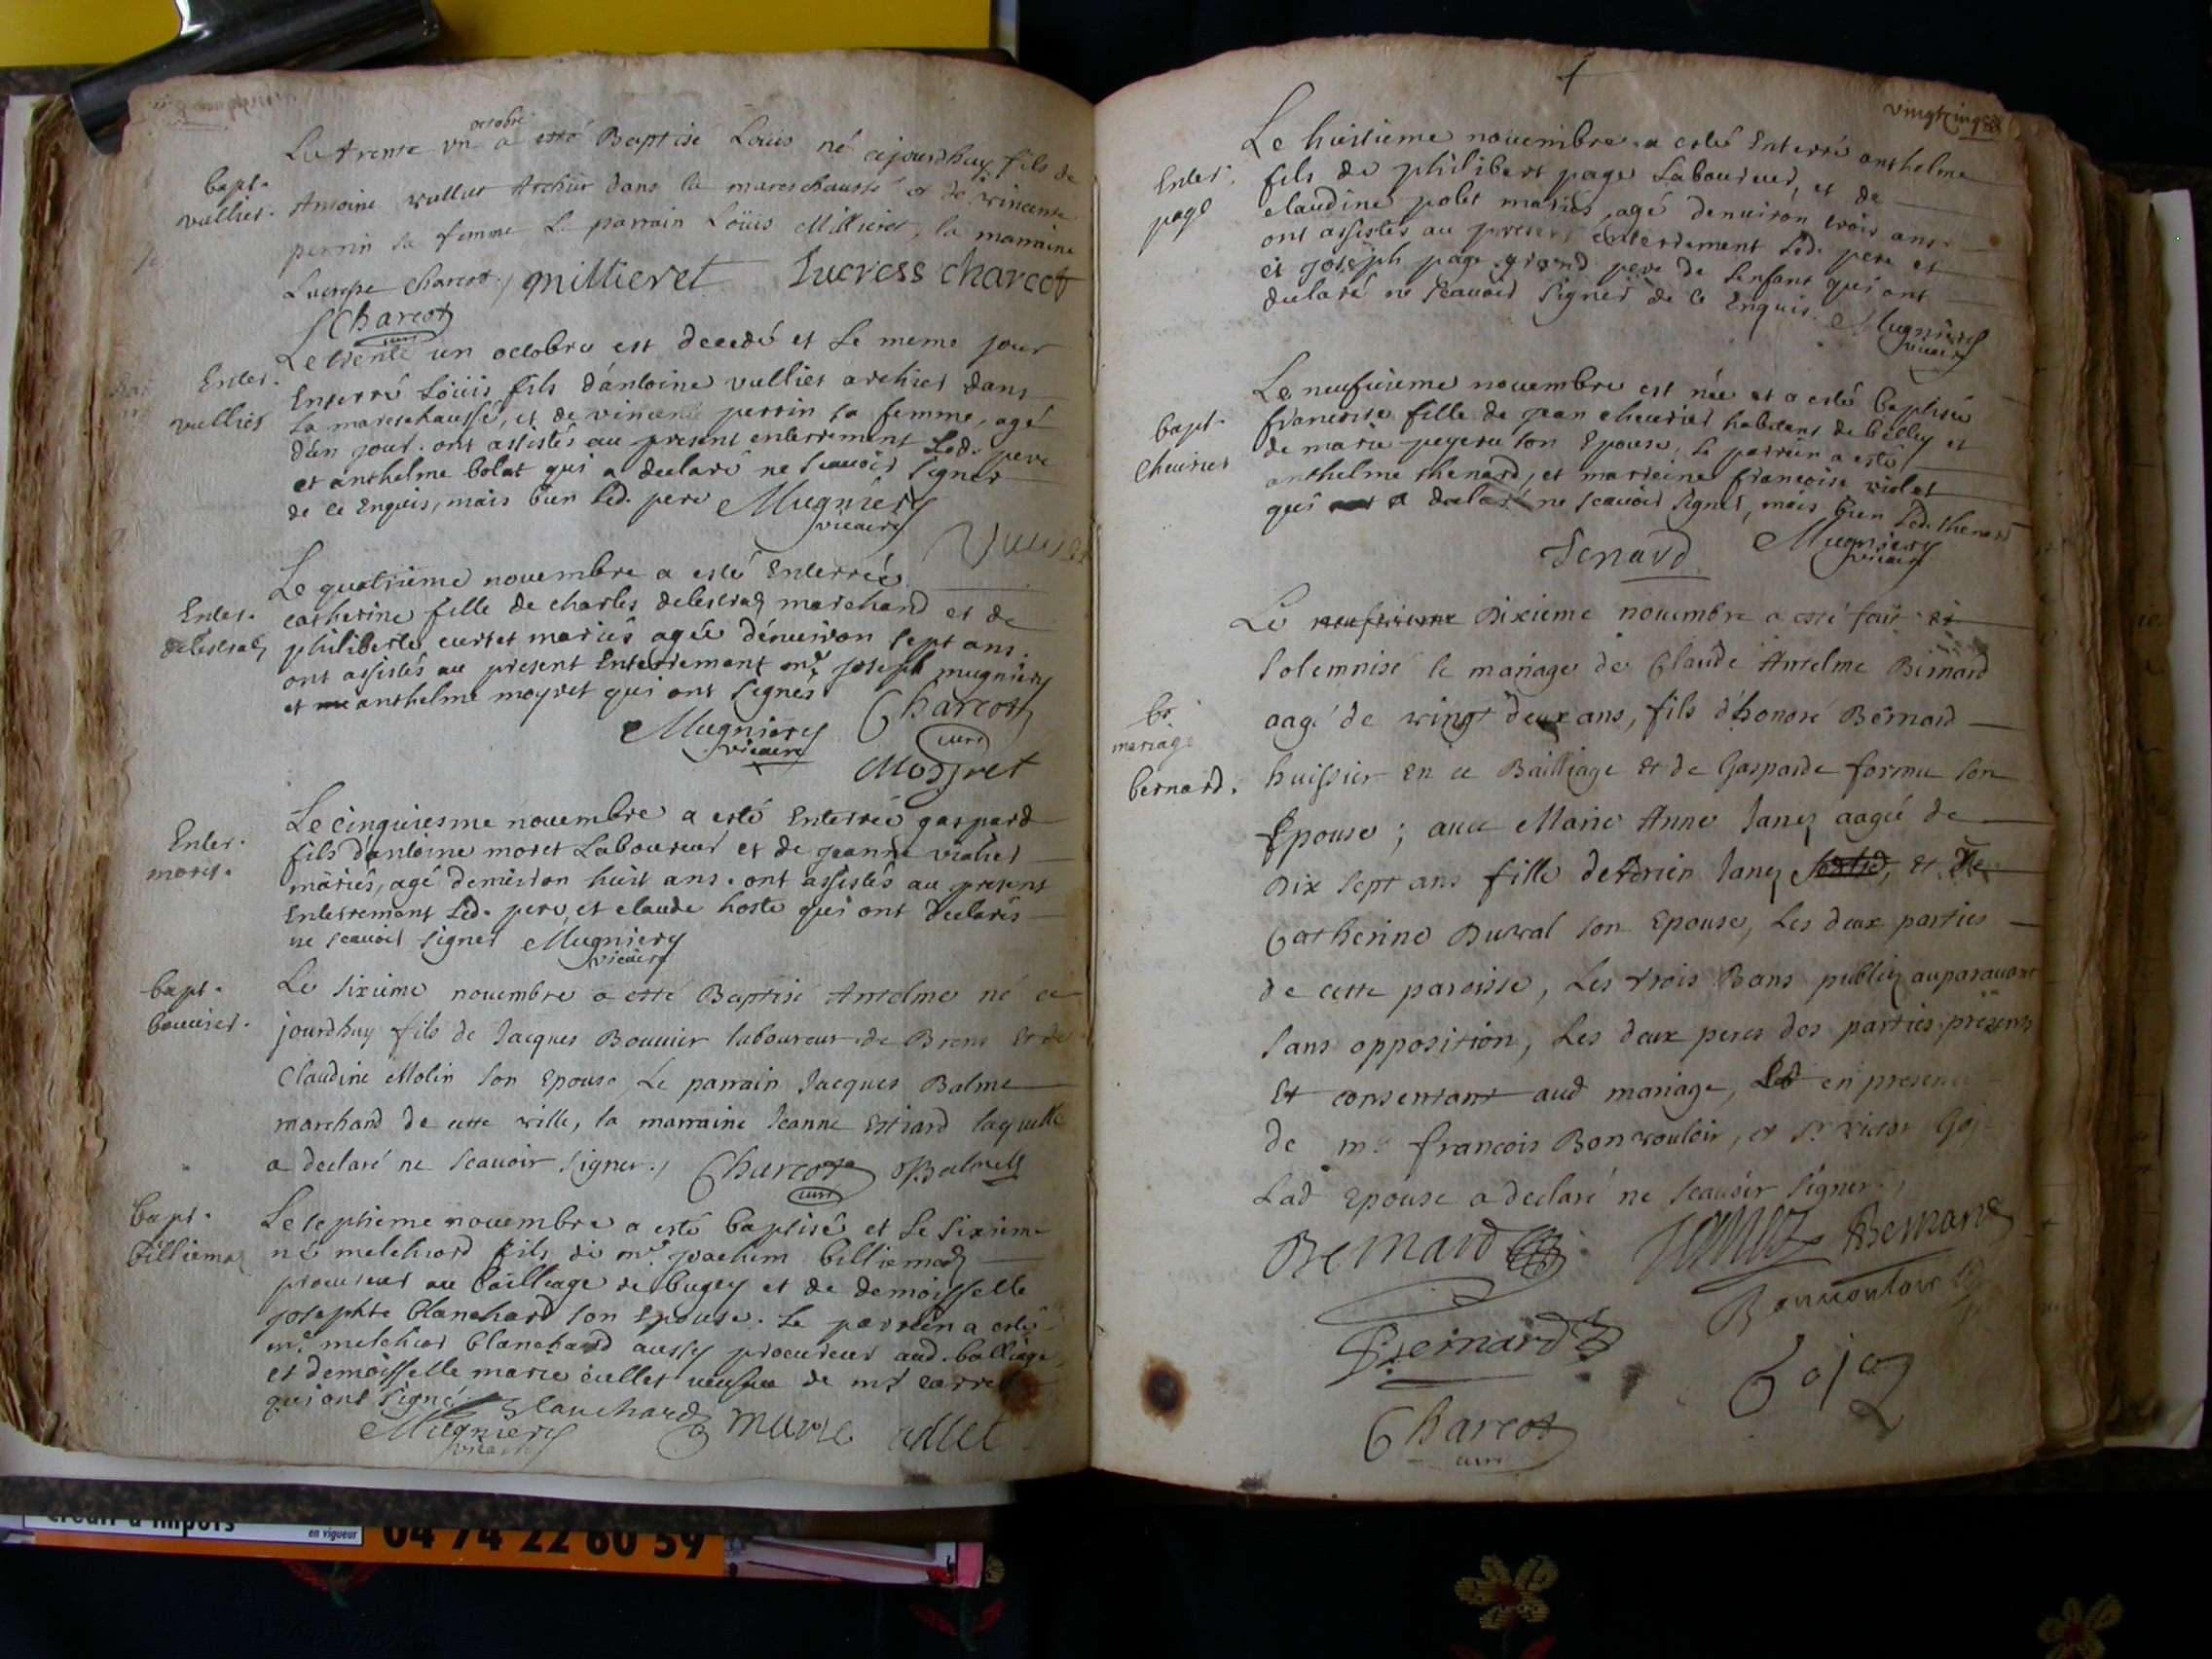 Le trente un octobre a esté Baptisé Loüis né cejourdhuy fils de
bapt.
vulliet.
Antoine vulliet Archier dans la mareschaussé et de vincente
perrin sa femme Le parrain Loüis Millieret, la marraine
Lucresse charcot., millieret Lucress charcot
Charcot
curé
Le trente un octobre est decedé et le meme jour
Enter.
vulliet
Enterré Loüis fils d'antoine vulliet archier dans
la mareschaussé, et de vincente perrin sa femme, agé
d'un jour. ont assistés au present enterrement led. pere
et anthelme bolat qui a declaré ne scauoir signer
de ce Enquis, mais bien led. pere Mugniery
vicaire
Le quatrieme nouembre a esté Enterrée
Enter.
catherine fille de charles delestraz marchand et de
delestraz
philiberte curtet mariés agée d'enuiron sept ans.
ont assistés au present Enterrement mre joseph mugniery
et anthelme moyret qui ont signés
Mugniery Charcot
vicaire curé
Moyret
Le cinquiesme nouembre a esté Enterré gaspard
Enter.
moret.
fils d'antoine moret Laboureur et de jeanne violet
mariés, agé denuiron huit ans. ont assistés au present
Enterrement led. pere, et claude hoste qui ont declarés
ne scauoir signer Mugniery
vicaire
bapt.
bouuier.
Le sixieme nouembre a esté Baptisé Antelme né ce
jourdhuy fils de Jacques Bouuier laboureur de Brens Et de
Claudine Molin son Epouse Le parrain Jacques Balme
marchand de cette ville, la marraine Jeanne Estiard laquelle
a declaré ne scauoir signer., Charcot Balme
curé
bapt.
billiemaz
Le septieme nouembre a esté baptisé et le sixieme
né melchiord fils de mre joachim billiemaz
procureur au bailliage de bugey et de demoisselle
josephte blanchard son Epouse. Le parrein a esté
mre melchior blanchard aussy procureur aud. balliage,
et demoisselle marie cullet ueufue de mr carrel
qui ont signé Blanchard marie cullet
Mugniery
vicaire
vingtcinq
Le huitieme nouembre a esté Enterré anthelme
Enter.
page
fils de philibert page Laboureur, et de
claudine polet mariés, agé denuiron trois ans.
ont assistés au present enterrement led. pere et
et joseph page grand pere de l'enfant qui ont
declaré ne scauoir signer de ce Enquis. Mugniery
vicaire
Le neufuieme nouembre est née et a esté baptisée
bapt.
cheurier
francoise fille de jean cheurier habitant de belley et
de marie peyere son Epouse, le parrein a esté
anthelme thenard, et marreine francoise violet
qui a declaré ne scauoir signer, mais bien led. thenard
Tenard Mugniery
vicaire
Le neufuieme Dixieme nouembre a esté fait et
solemnisé le mariage de Claude Antelme Bernard
mariage
bernard.
aagé de vingt deux ans, fils d'honoré Bernard
huissier En ce Bailliage Et de Gasparde fornu son
Epouse; auec Marie Anne Janez aagée de
Dix sept ans fille de Adrien Janez et de
Catherine Duval son Epouse, Les deux parties
de cette paroisse, Les trois Bans publiez auparauant
sans opposition, Les deux peres des parties presents
Et consentant aud mariage, en presence
de mr francois Bonvouloir, et sr victor Goj
Lad Epouse a declaré ne scauoir signer.,
Bernard Janez Bernard
Bonuouloir
Bernard
Goj
Charcot
curé
en vigueur
04 74 22 60 59